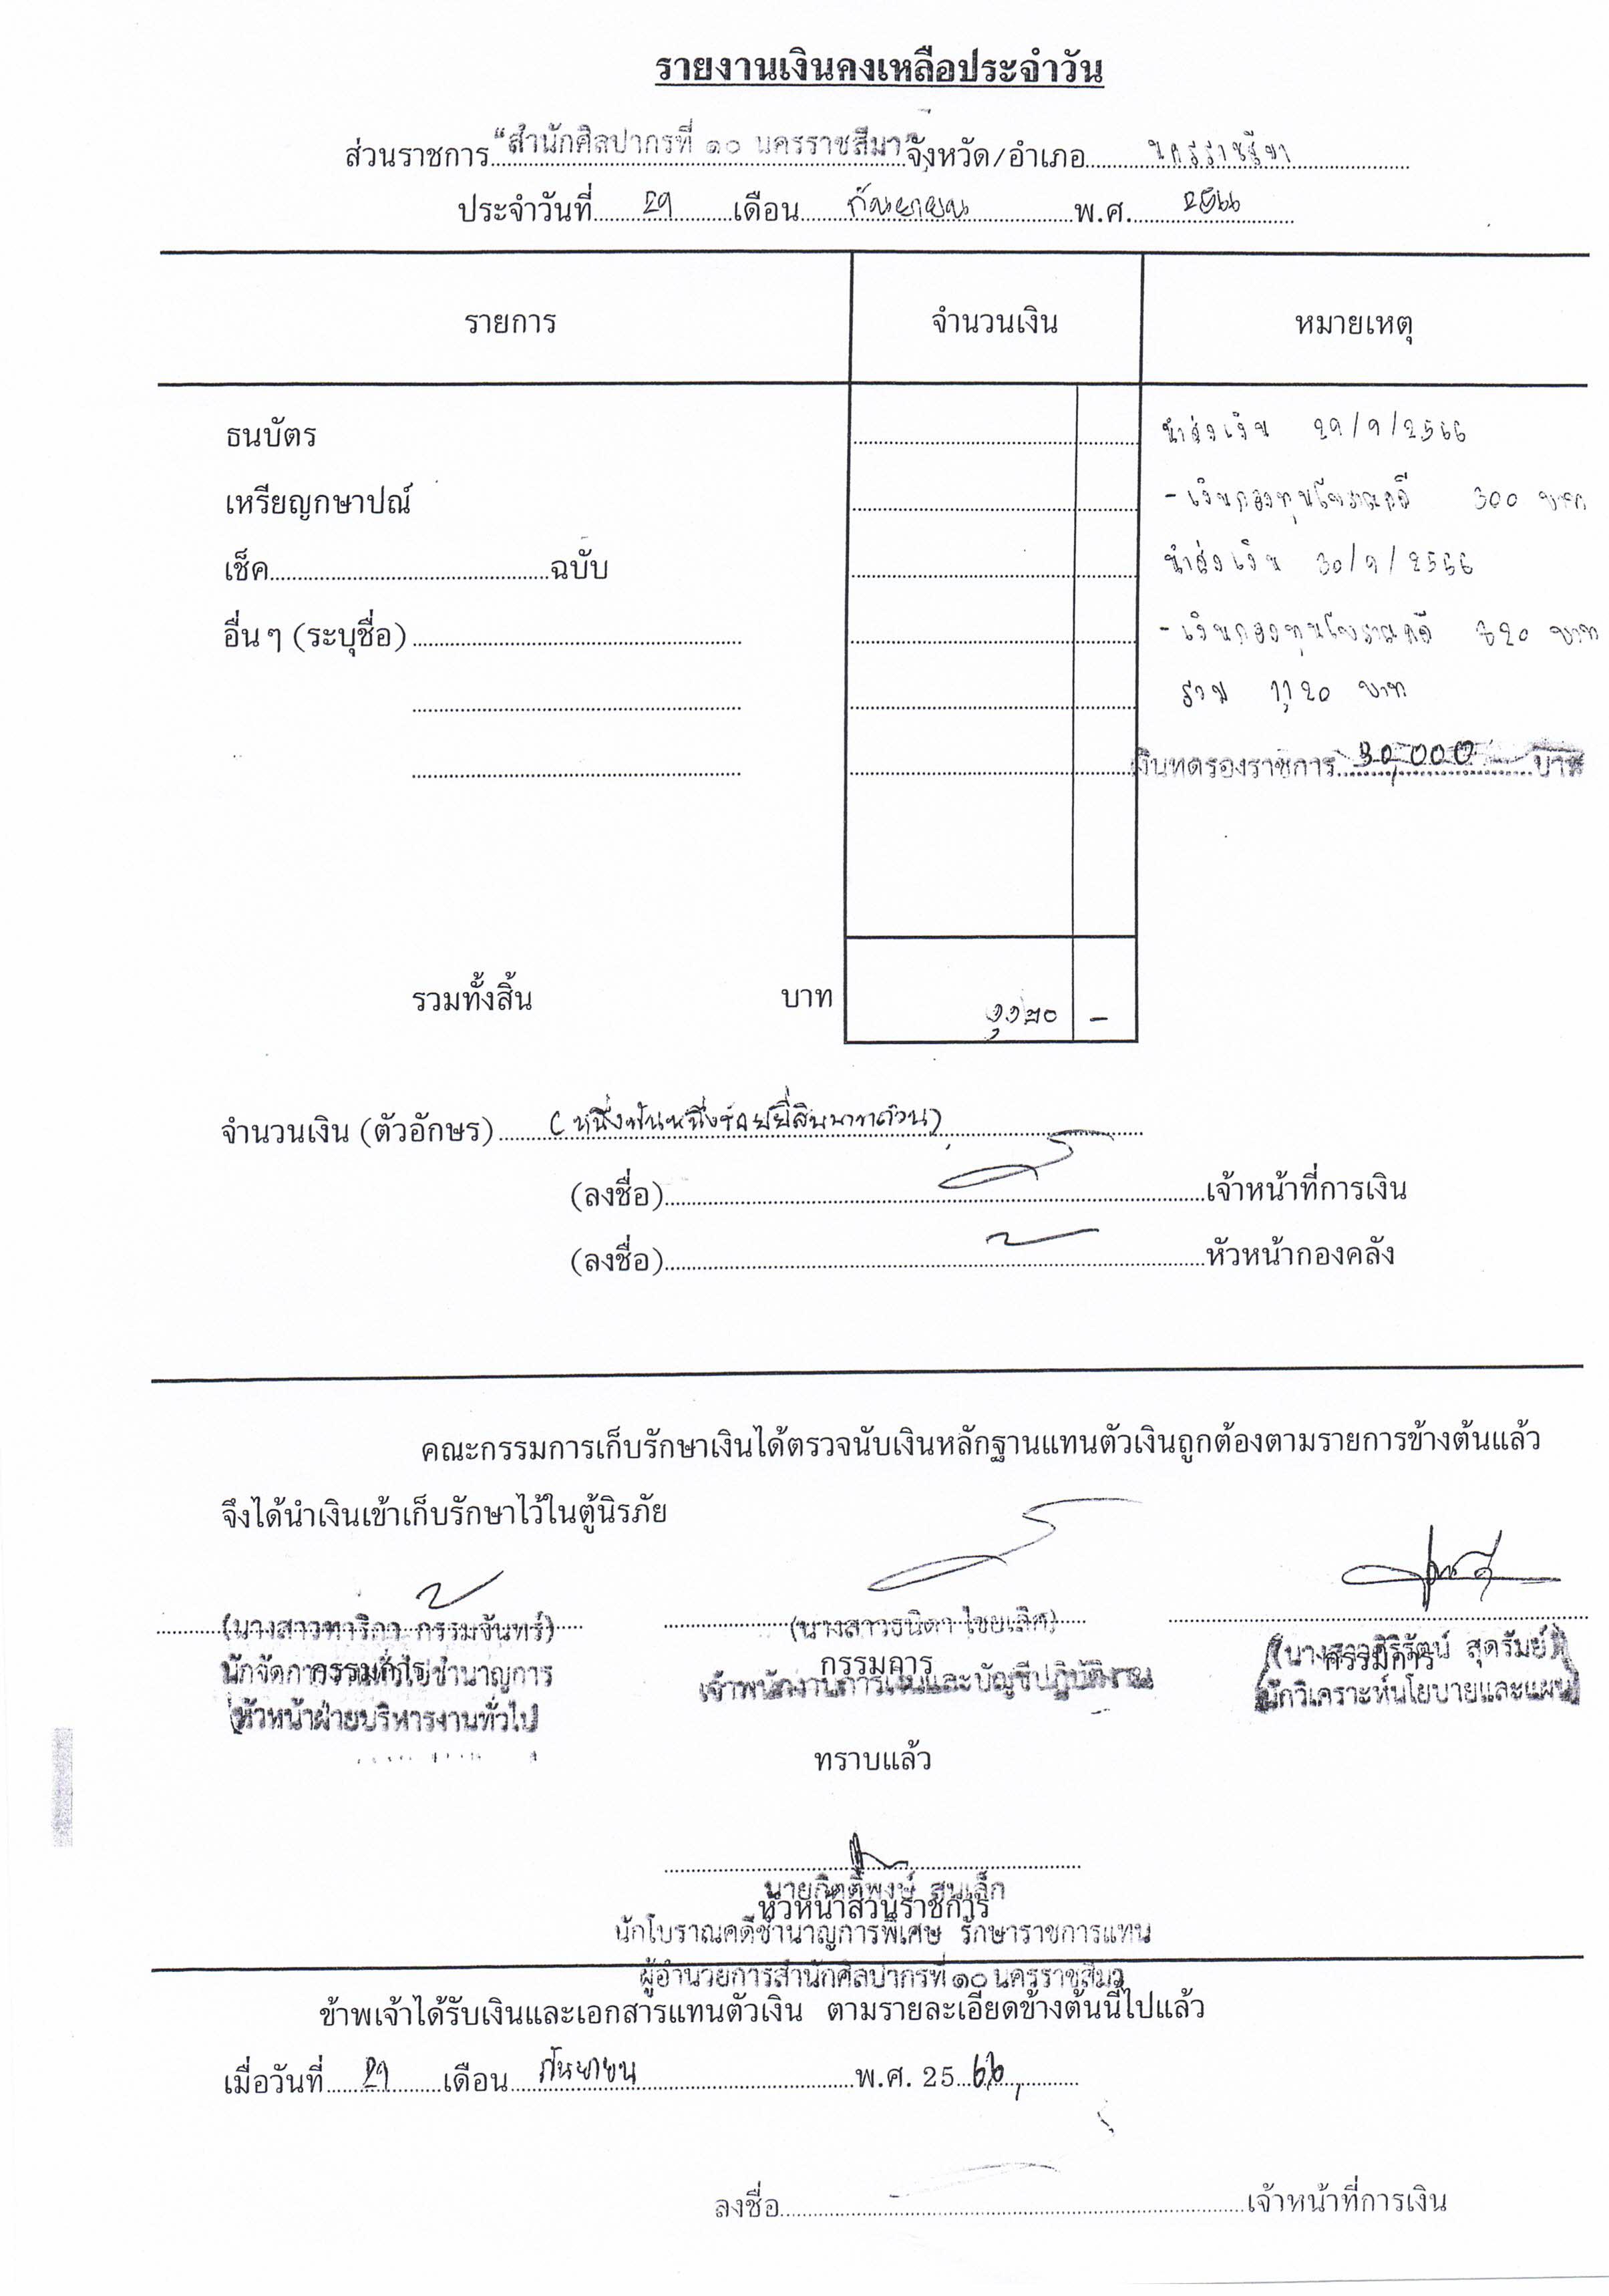 รายงานเงินคงเหลือประจำวัน
ส่วนราชการ "สำนักศิลปากรที่ ๑๐ นครราชสีมา" จังหวัด/อำเภอ นครราชสีมา
ประจำวันที่ 29 เดือน กันยายน พ.ศ. 2566
รายการ จำนวนเงิน หมายเหตุ
ธนบัตร นำส่งเงิน 29/9/2566
เหรียญกษาปณ์ - เงินกองทุนโบราณคดี 300 บาท
เช็ค ฉบับ นำส่งเงิน 30/9/2566
อื่น ๆ (ระบุชื่อ) - เงินกองทุนโบราณคดี 820 บาท
รวม 1,120 บาท
เงินทดรองราชการ 30,000 - บาท
รวมทั้งสิ้น บาท ๑,๑๒๐ -
จำนวนเงิน (ตัวอักษร) (หนึ่งพันหนึ่งร้อยยี่สิบบาทถ้วน)
(ลงชื่อ) เจ้าหน้าที่การเงิน
(ลงชื่อ) หัวหน้ากองคลัง
คณะกรรมการเก็บรักษาเงินได้ตรวจนับเงินหลักฐานแทนตัวเงินถูกต้องตามรายการข้างต้นแล้ว
จึงได้นำเงินเข้าเก็บรักษาไว้ในตู้นิรภัย
(นางสาวทาริกา กรรมจันทร์) (นางสาวธนิดา ไชยเลิศ) (นางสาวศิริรัตน์ สุดรัมย์)
กรรมการ กรรมการ กรรมการ
นักจัดการงานทั่วไปชำนาญการ เจ้าพนักงานการเงินและบัญชีปฏิบัติงาน นักวิเคราะห์นโยบายและแผน
หัวหน้าฝ่ายบริหารงานทั่วไป
ทราบแล้ว
นายกิตติพงษ์ สนเล็ก
หัวหน้าส่วนราชการ
นักโบราณคดีชำนาญการพิเศษ รักษาราชการแทน
ผู้อำนวยการสำนักศิลปากรที่ ๑๐ นครราชสีมา
ข้าพเจ้าได้รับเงินและเอกสารแทนตัวเงิน ตามรายละเอียดข้างต้นนี้ไปแล้ว
เมื่อวันที่ 29 เดือน กันยายน พ.ศ. 25 66
ลงชื่อ เจ้าหน้าที่การเงิน